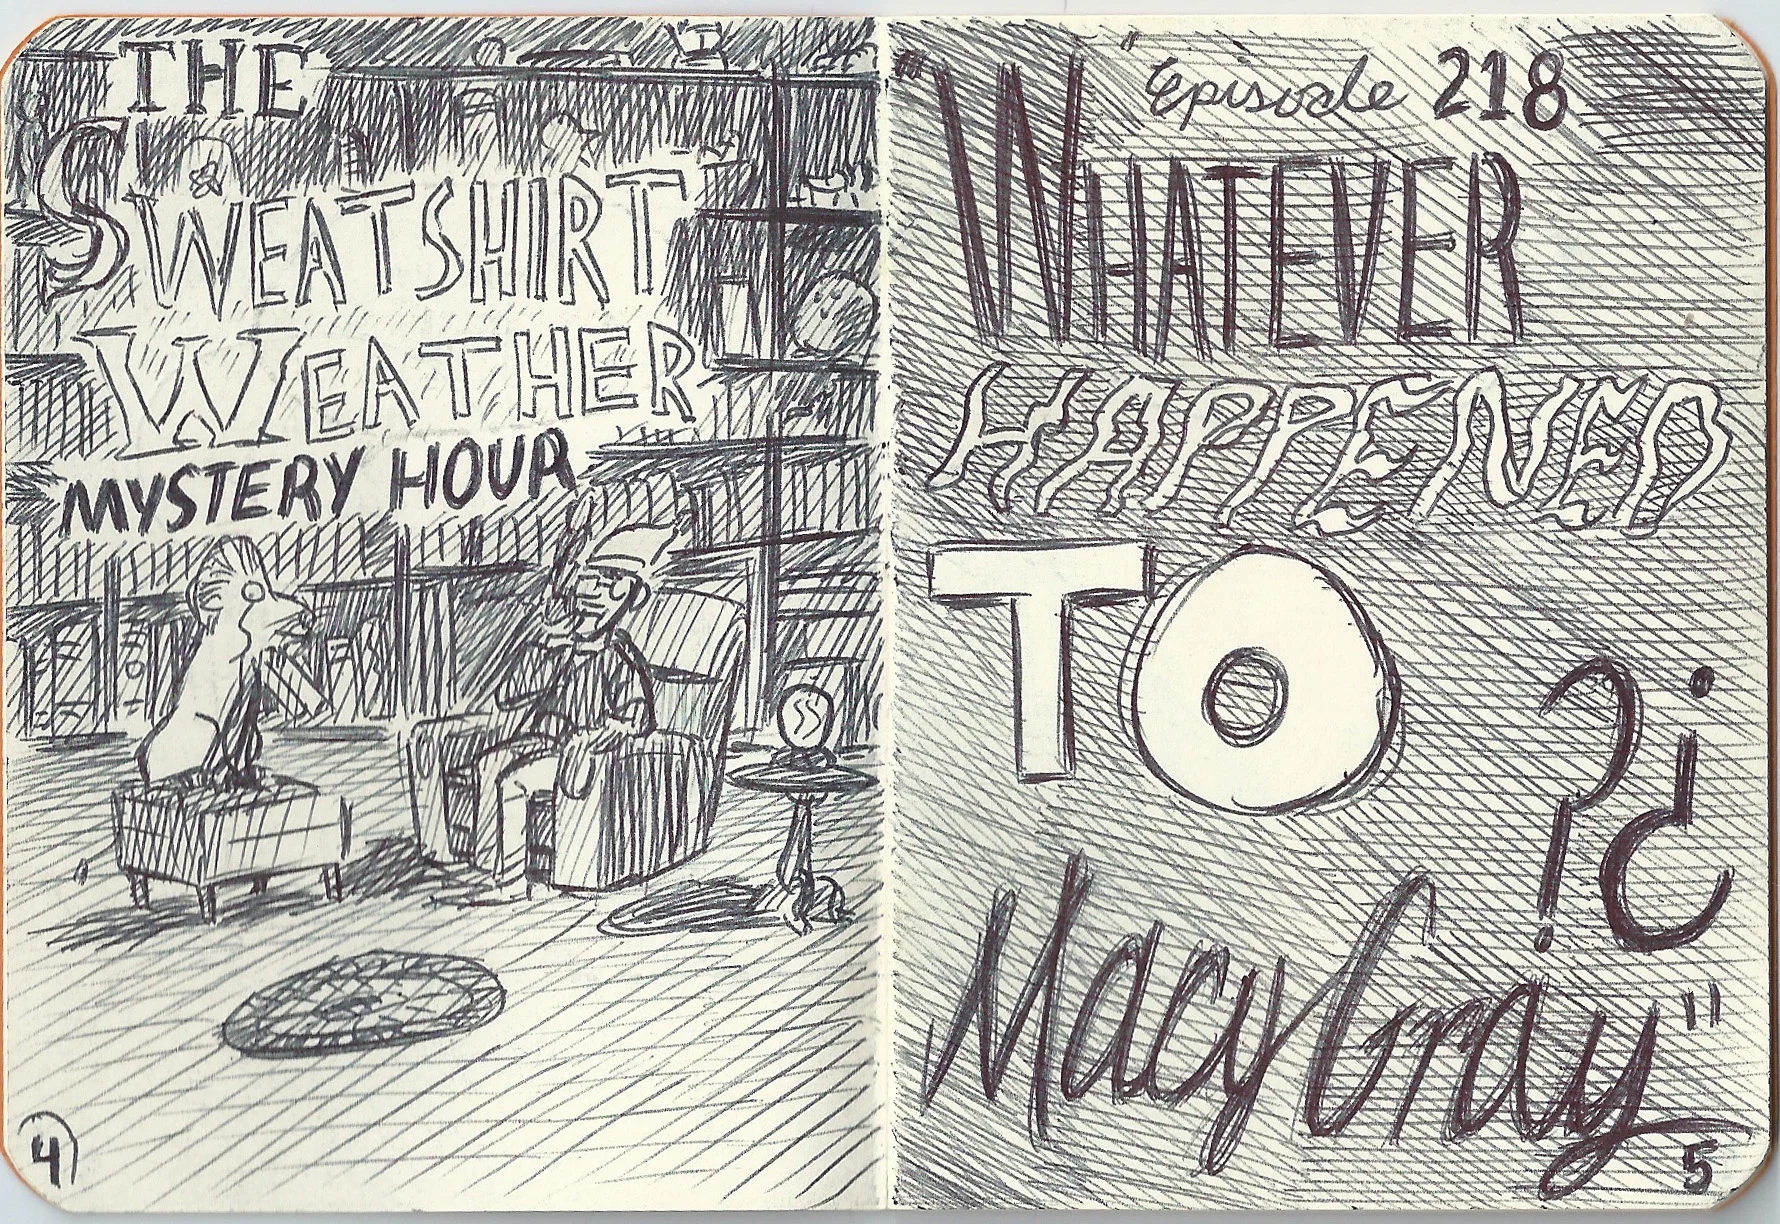 THE
SWEATSHIRT
WEATHER
MYSTERY HOUR
4
Episode 218
"WHATEVER
HAPPENED
TO
?¿
Macy Gray"
5